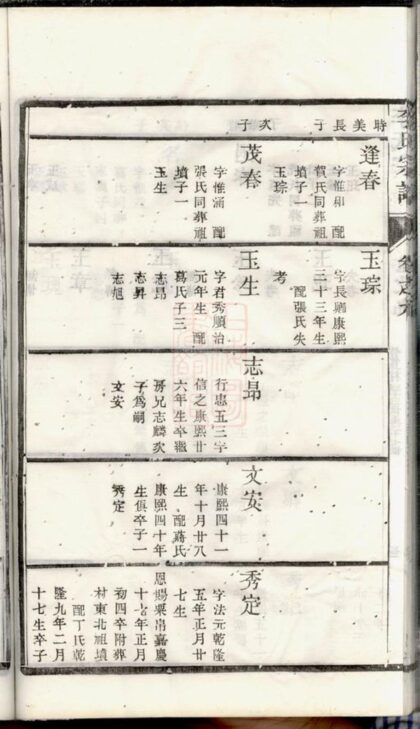 李氏宗譜
時美長子
次子
逢春
字惟和 配
賀氏同葬祖
墳子一
玉琮
茂春
字惟涵 配
張氏同葬祖
墳子一
玉生
玉琮
字長 康熙
二十三年生
配張氏失
考
玉生
字君秀順治
元年生 配
葛氏子三
志昂
志昇
志旭
志昂
行忠五三字
信之康熙廿
六年生卒繼
房兄志麟次
子為嗣
文安
文安
康熙四十一
年十月廿八
生 配蔣氏
康熙四十年
生俱卒子一
秀定
秀定
字法元乾隆
五年正月廿
七生
恩賜粟帛嘉慶
十七年正月
初四卒附葬
村東北祖墳
配丁氏乾
隆九年二月
十七生卒子